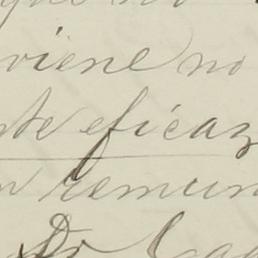 viene no
te eficaz
n remun
Dr